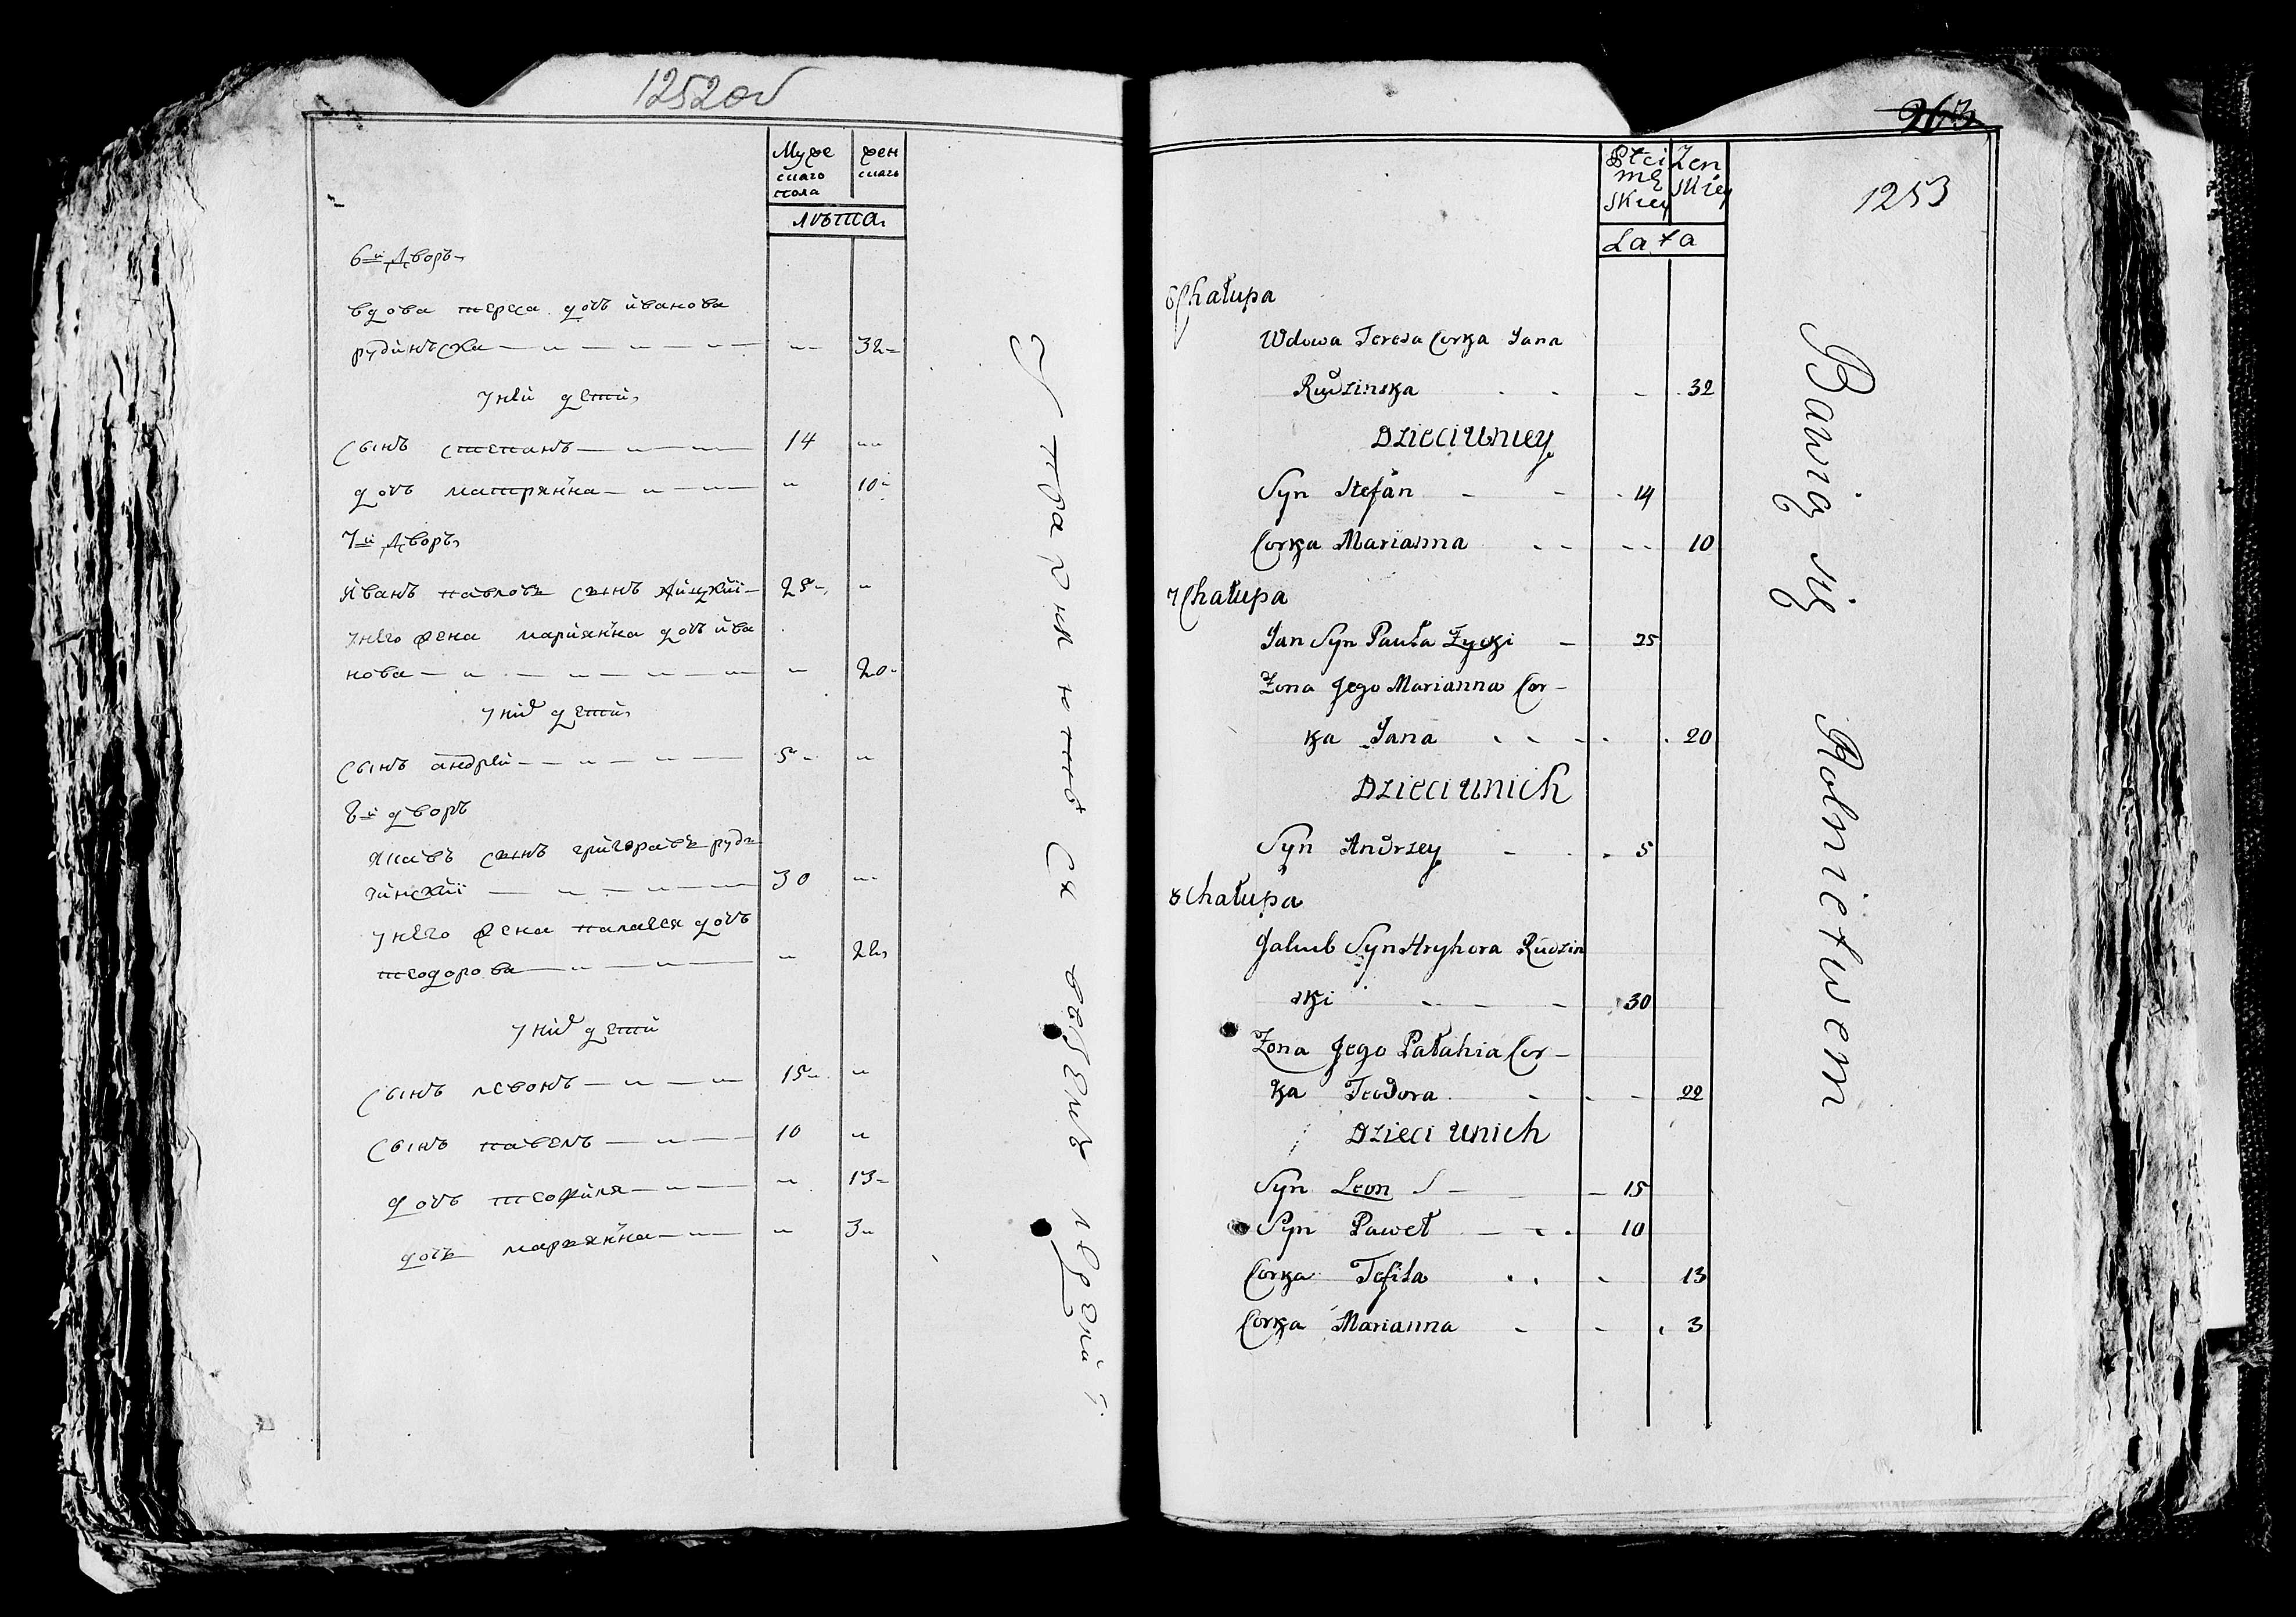 1252об
Муже
скаго
пола
жен
скаго
лѣта
6й Дворъ
вдова тереса дочь иванова
рудинъска 32
у неи дети
сынъ степанъ 14
дочь матрянна 10
7й Дворъ
иванъ павловъ сынъ жицкии 25
у него жена марианна дочь ива
нова 20
у них дети
сынъ андреи 5
8й дворъ
якавъ сынъ григоравъ рудь
зински 30
у него жена палагея дочь
теодорова 22
у них дети
сынъ левонъ 15
сынъ павелъ 10
дочь теофиля 13
дочь марьянна 3
263
1253
Płci
mę
skiey
Zen
skiey
Lata
6 Chałupa
Wdowa Teresa Corka Jana
Rudzinska 32
Dzieci u niey
Syn Stefan 14
Corka Marianna 10
7 Chałupa
Jan Syn Pawła Zycki 25
Zona Jego Marianna Cor-
ka Jana 20
Dzieci u nich
Syn Andrzey 5
8 Chałupa
Jakub Syn Hryhora Rudzin
ski 30
Zona Jego Pałahia Cor-
ka Teodora 22
Dzieci u nich
Syn Leon 15
Syn Paweł 10
Corka Tefila 13
Corka Marianna 3
Bawią się Rolnictwem